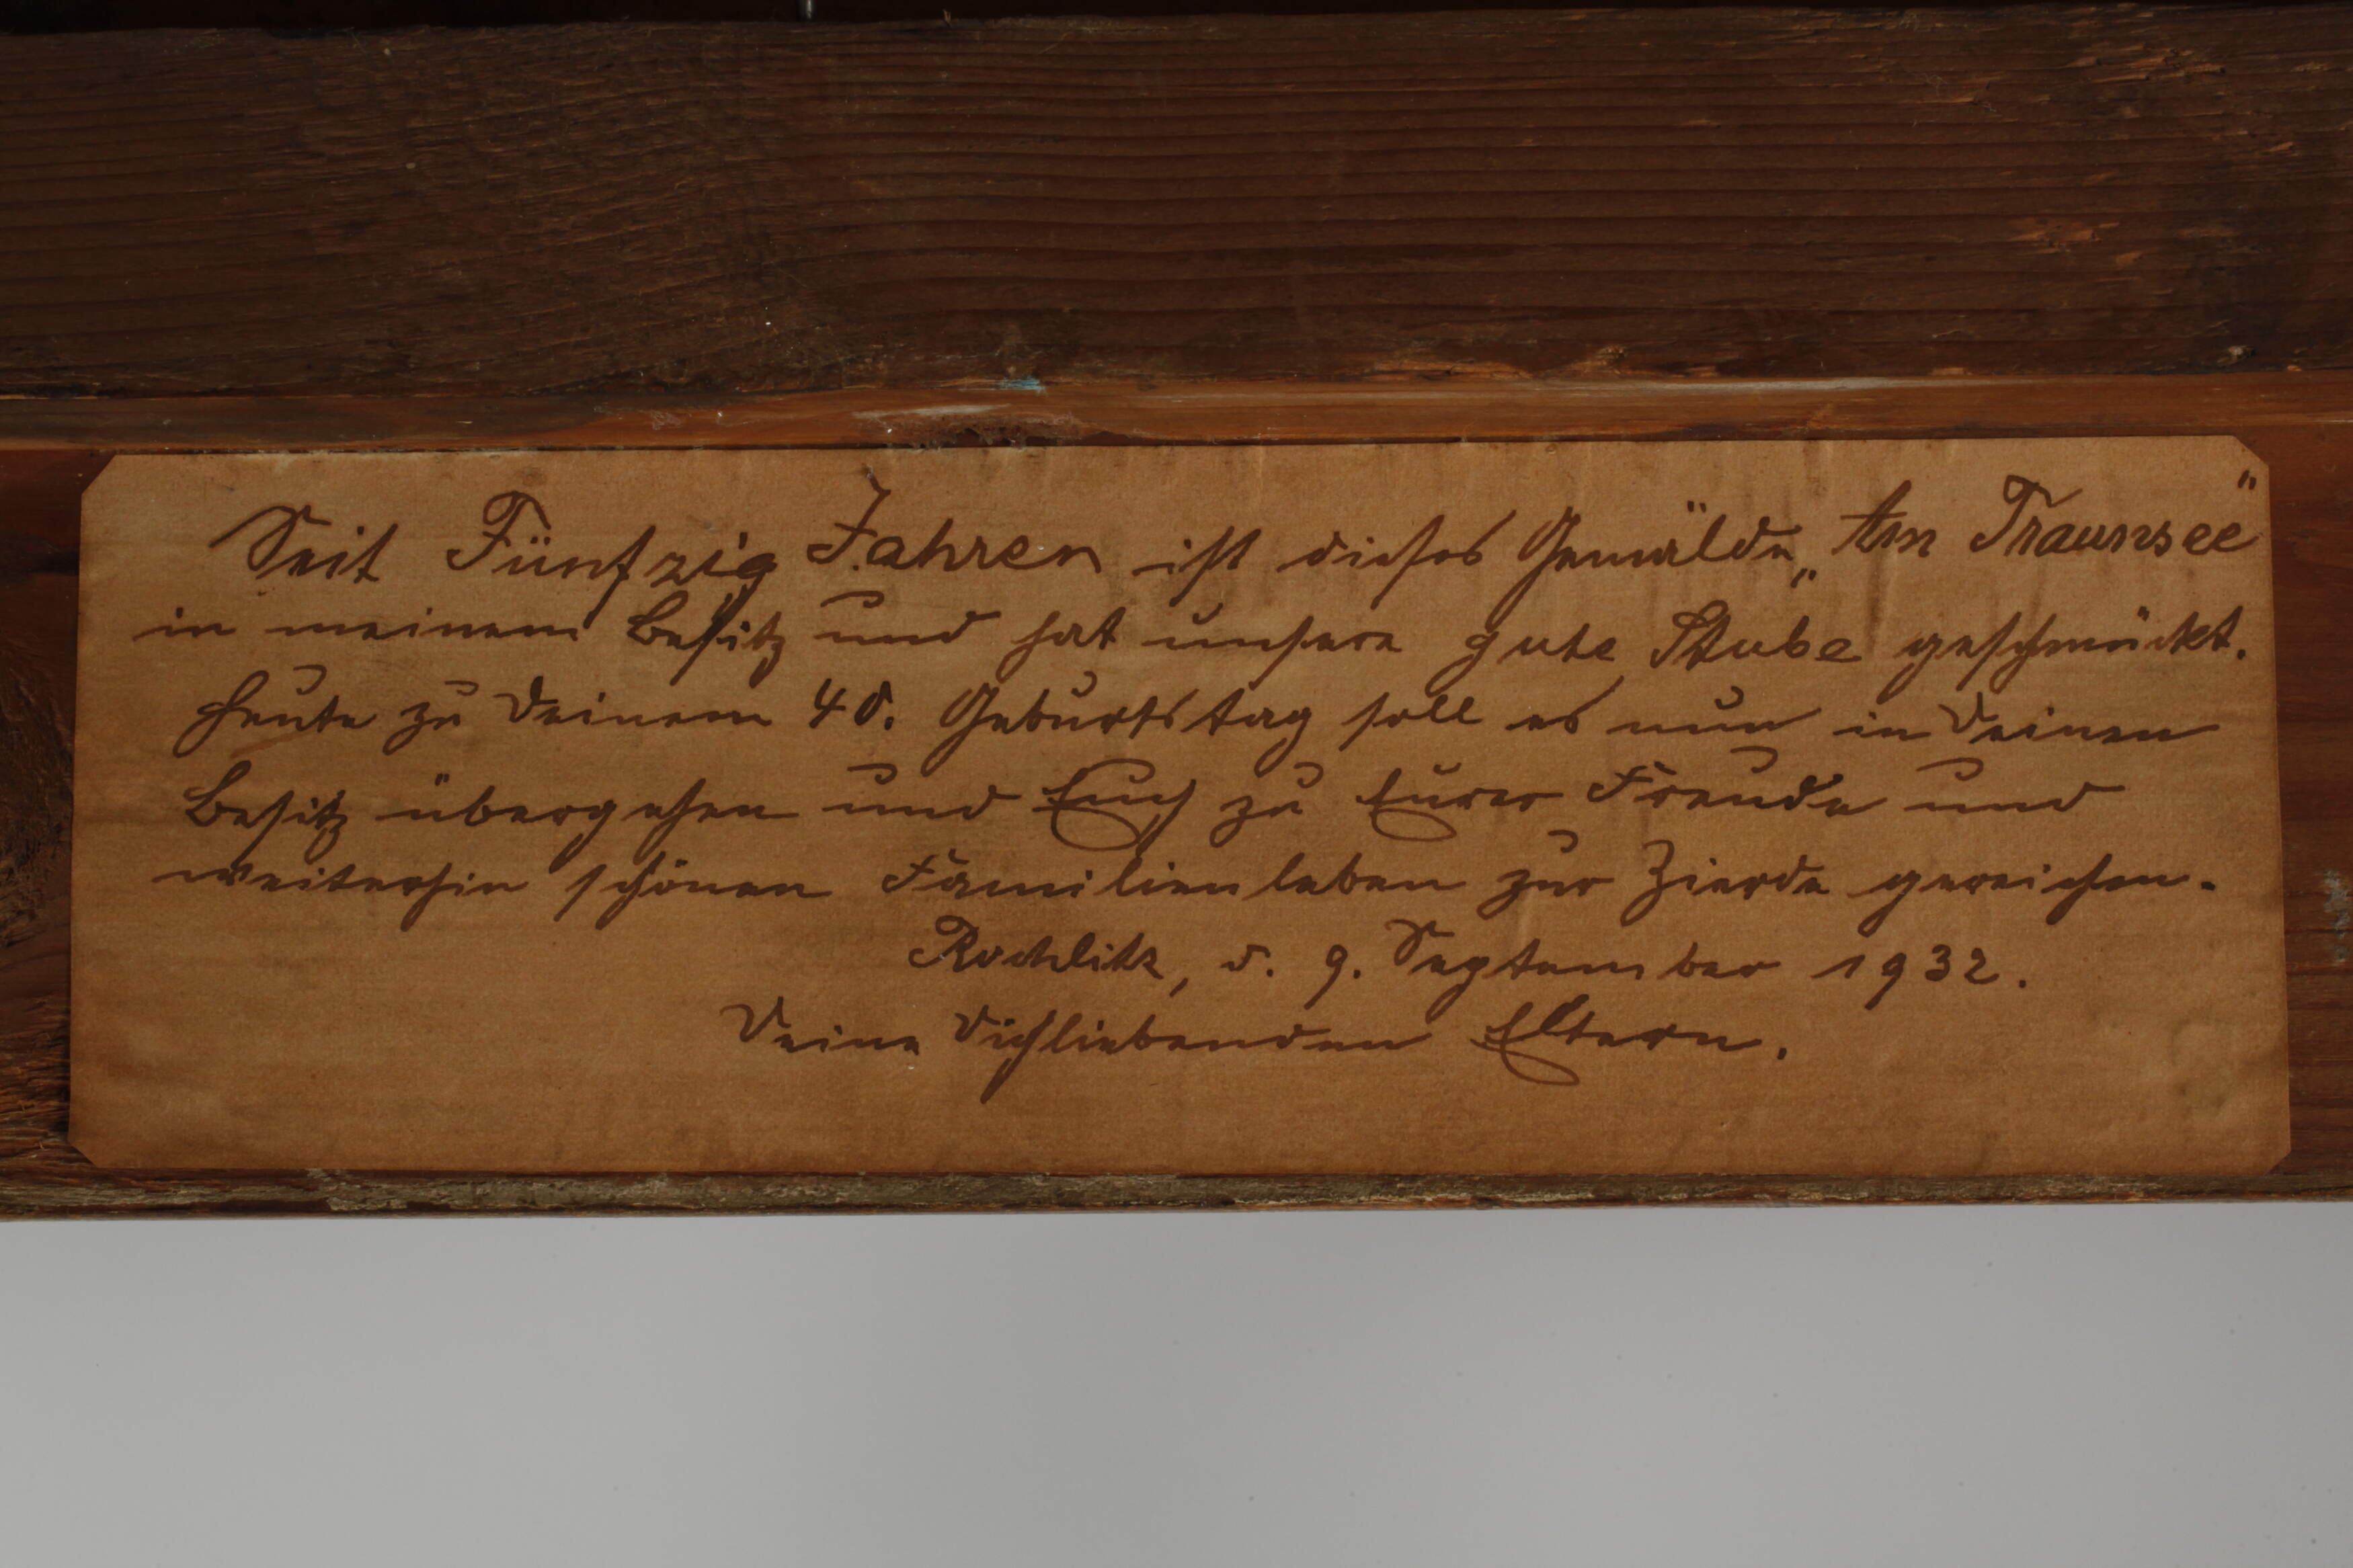 Seit Fünfzig Jahren ist dieses Gemälde „Am Traunsee"
in meinem Besitz und hat unsere gute Stube geschmückt.
Heute zu Deinem 40. Geburtstag soll es nun in Deinen
Besitz übergehen und Euch zu Eurer Freude und
weiterhin schönen Familienleben zur Zierde gereichen.
Rochlitz, d. 9. September 1932.
Deine Dichliebenden Eltern.